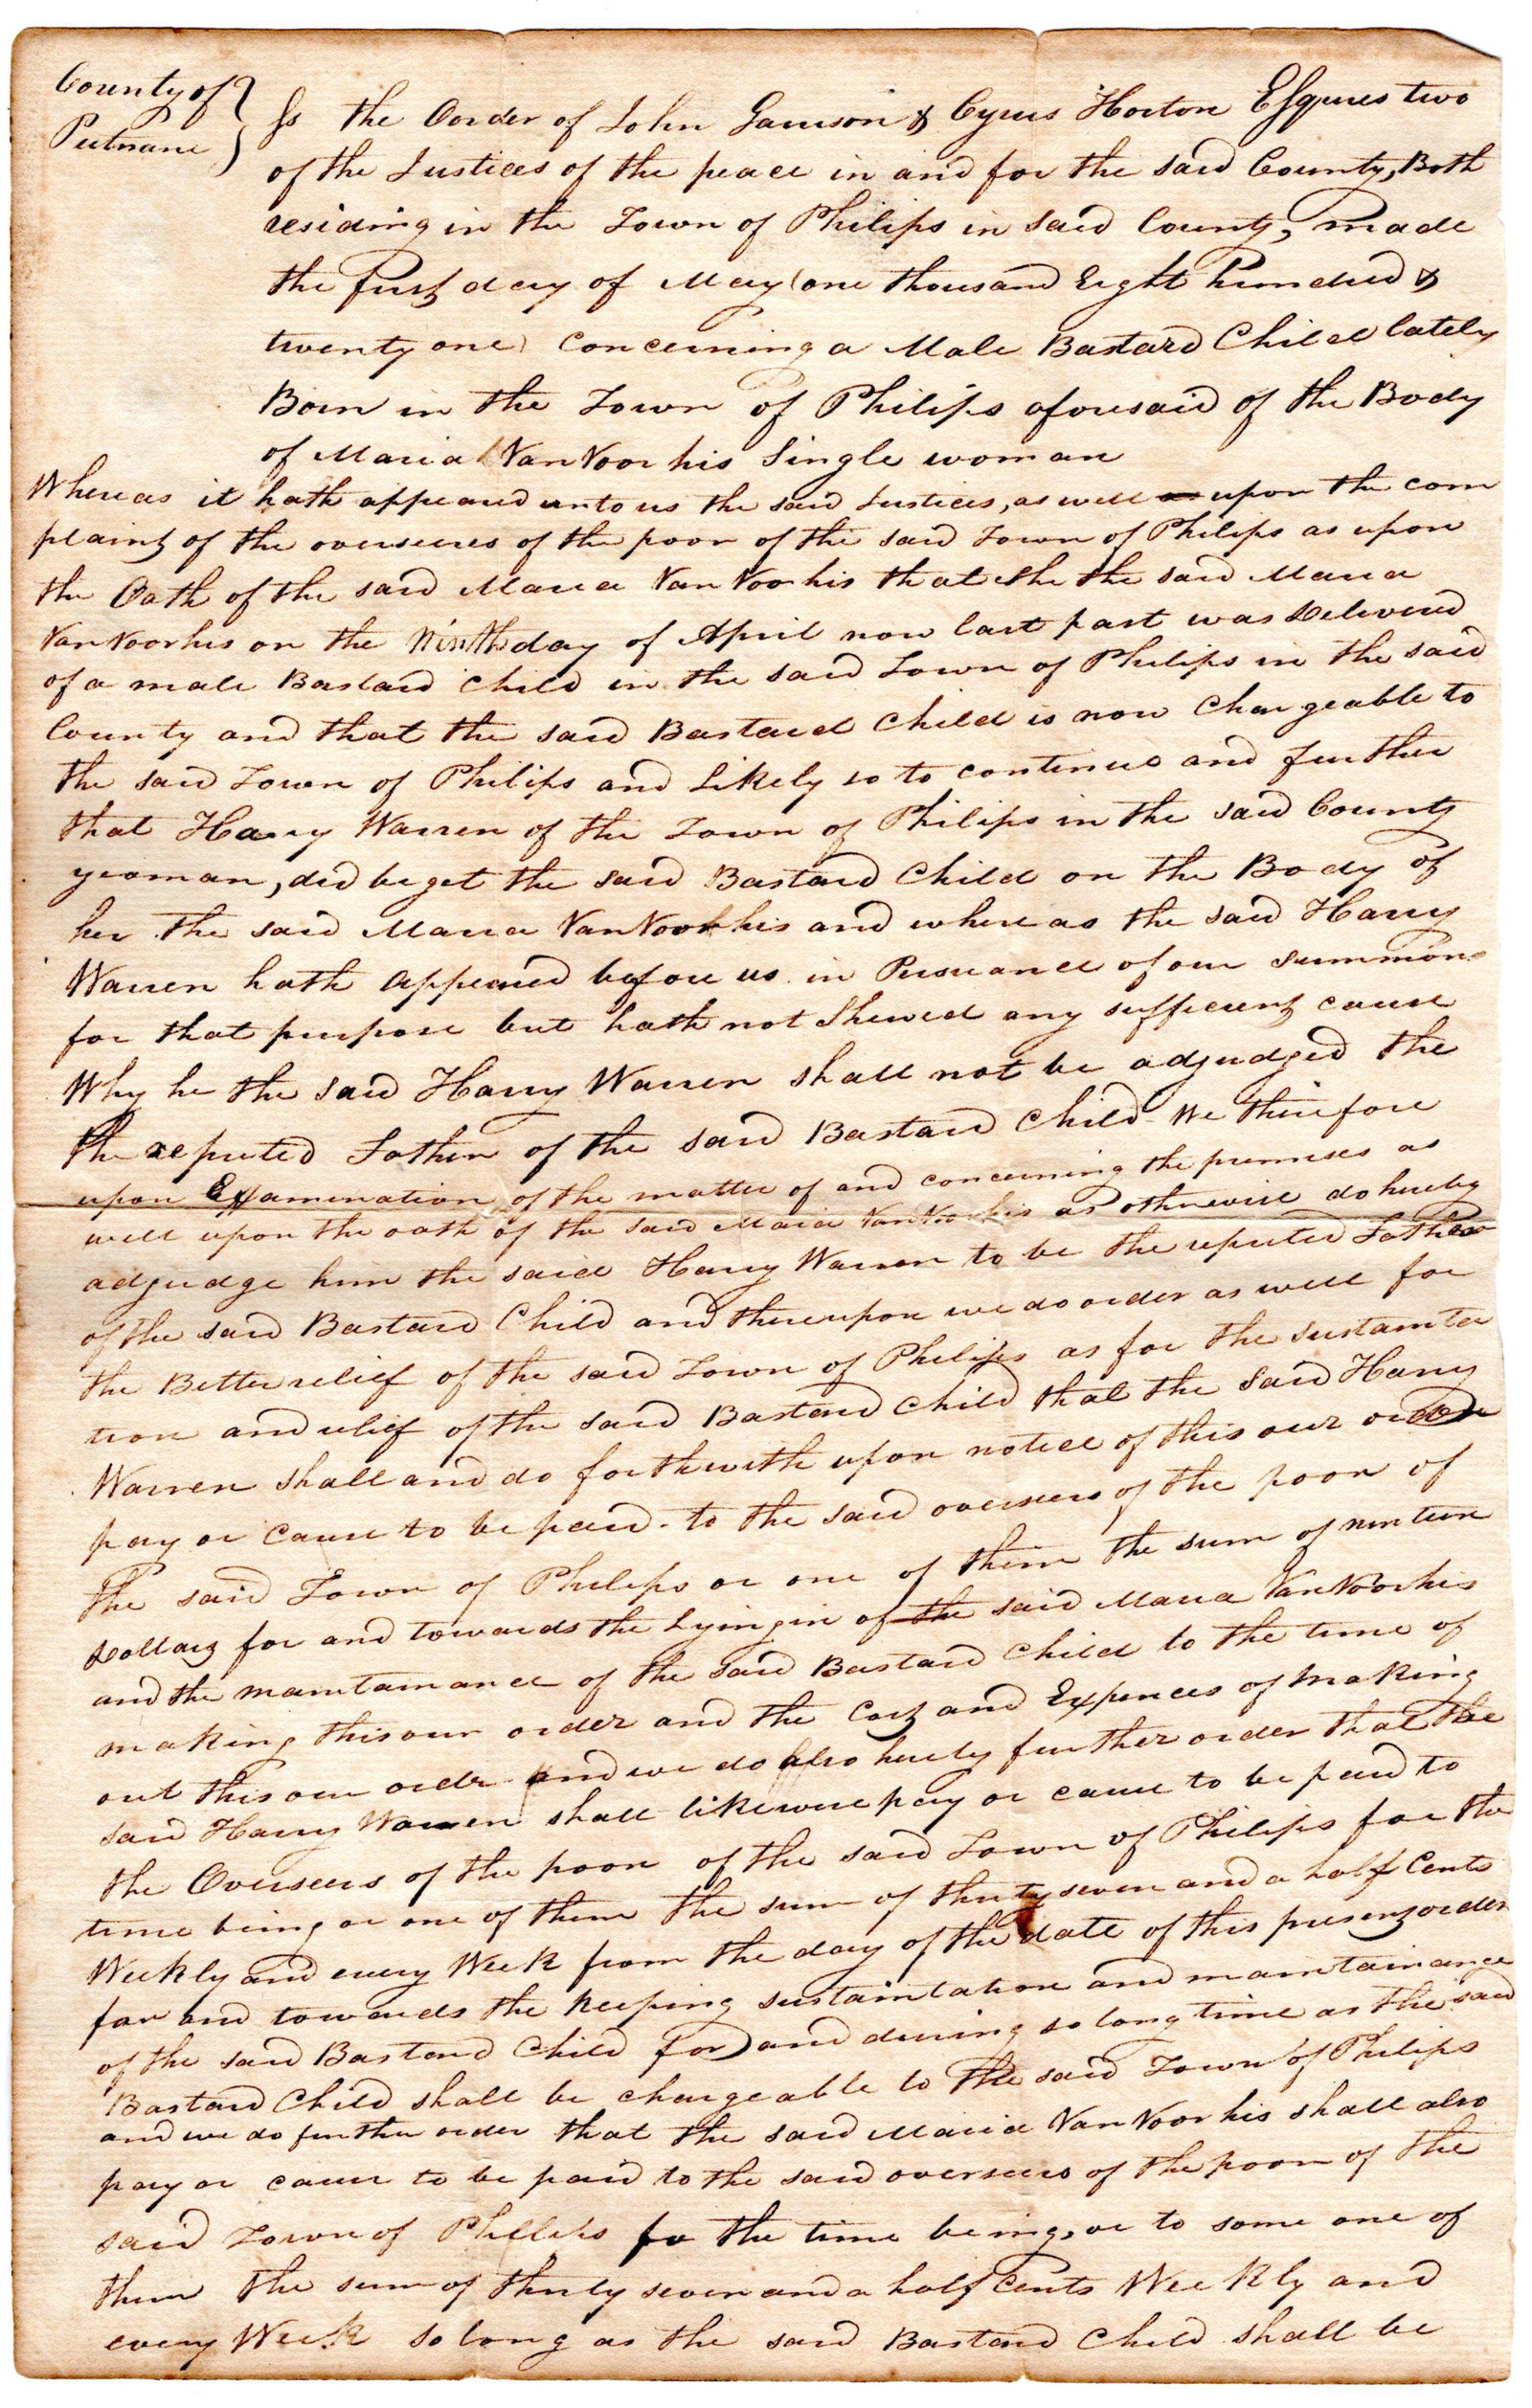 County of
Putnam
Ss The Order of John Garrison & Cyrus Horton Esquires two
of the Justices of the peace in and for the said County, Both
residing in the Town of Philips in said County, made
the first day of May (one thousand Eight hundred &
twenty one) concerning a Male Bastard Child lately
Born in the Town of Philips aforesaid of the Body
of Maria VanVoorhis Single woman
Whereas it hath appeared unto us the said Justices, as well upon the com
plaint of the overseeres of the poor of the said Town of Philips as upon
the Oath of the said Maria VanVoorhis that She the said Maria
VanVoorhis on the Ninth day of April now last past was Delivered
of a male Bastard Child in the said Town of Philips in the said
County and that the said Bastard Child is now Chargeable to
the said Town of Philips and likely so to continue and further
that Harry Warren of the Town of Philips in the said County
yeoman, did beget the said Bastard Child on the Body of
her the said Maria VanVoorhis and whereas the said Harry
Warren hath appeared before us in Persuance of our summons
for that purpose but hath not Shewed any sufficient cause
Why he the said Harry Warren shall not be adjudged the
the reputed Father of the said Bastard Child We therefore
upon Examination of the matter of and concerning the premises as
well upon the oath of the said Maria VanVoorhis as otherwise do hereby
adjudge him the said Harry Warren to be the reputed Father
of the said Bastard Child and thereupon we do order as well for
the Better relief of the said Town of Philips as for the sustainta
tion and relief of the said Bastard Child that the said Harry
Warren shall and do forthwith upon notice of this our order
pay or cause to be paid to the said overseers of the poor of
the said Town of Philips or one of them the sum of nineteen
Dollars for and towards the Lying in of the said Maria VanVoorhis
and the maintainance of the said Bastard Child to the time of
making this our order and the Cost and Expences of making
out this our order and we do also hereby further order that the
said Harry Warren shall likewise pay or cause to be paid to
the Overseers of the poor of the said Town of Philips for the
time being or one of them the sum of thirty seven and a half Cents
Weekly and every Week from the day of the date of this present order
for and towards the keeping sustaintation and maintainance
of the said Bastard Child for and during so long time as the said
Bastard Child shall be chargeable to the said Town of Philips
and we do further order that the said Maria VanVoorhis shall also
pay or cause to be paid to the said overseers of the poor of the
said Town of Phillips for the time being, or to some one of
them the sum of thirty seven and a half Cents Weekly and
every Week so long as the said Bastard Child shall be